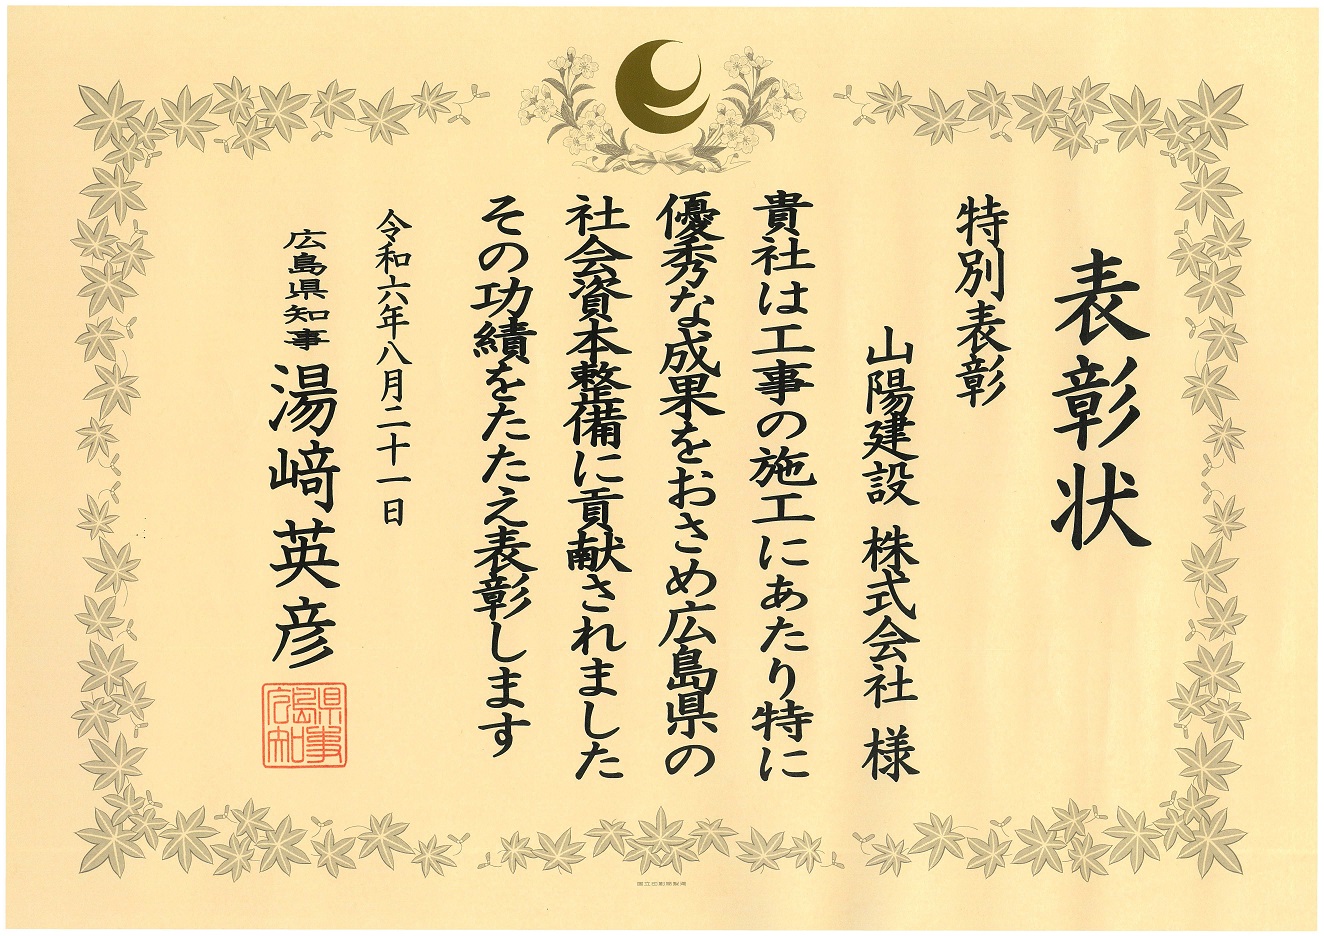 表彰状
特別表彰
山陽建設 株式会社 様
貴社は工事の施工にあたり特に
優秀な成果をおさめ広島県の
社会資本整備に貢献されました
その功績をたたえ表彰します
令和六年八月二十一日
広島県知事 湯﨑英彦
広島県知事